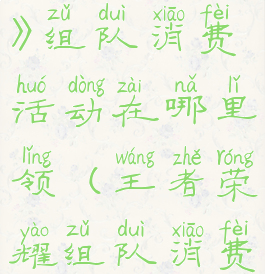 zǔ duì xiāo fèi
》组队消费
huó dòng zài nǎ lǐ
活动在哪里
lǐng wáng zhě róng
领（王者荣
yào zǔ duì xiāo fèi
耀组队消费